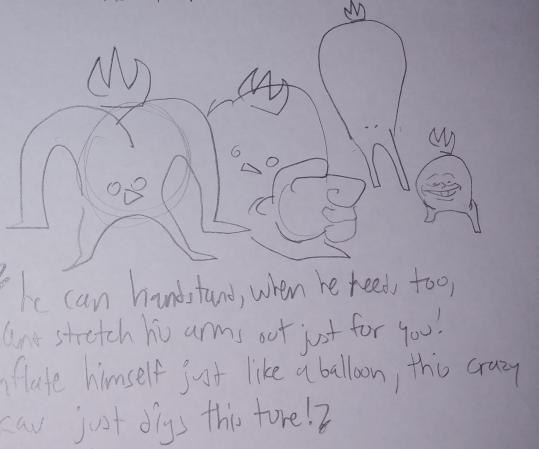 he can handstand, when he needs too,
stretch his arms out just for you!
nflate himself just like a balloon, this crazy
just digs this tune!